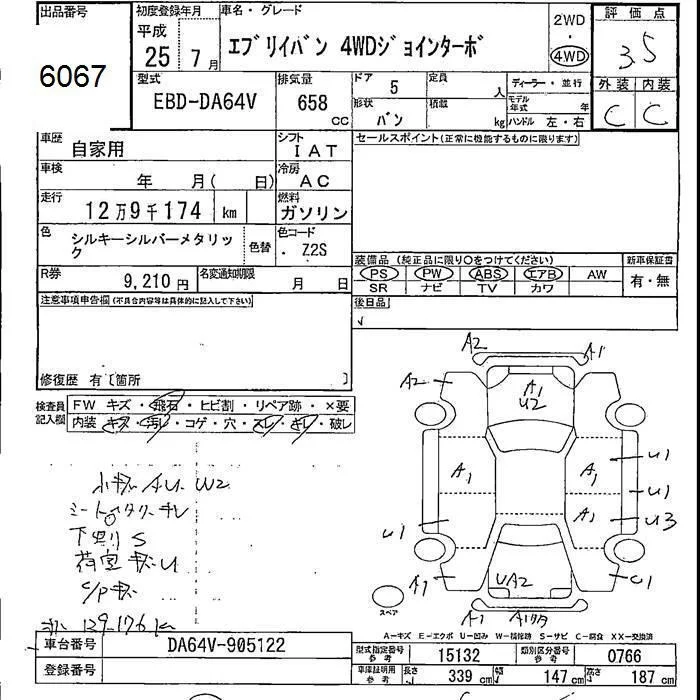 出品番号
6067
初度登録年月
平成
25年7月
車名・グレード
エブリイバン 4WDジョインターボ
2WD
・
4WD
評価点
3.5
外装 内装
C C
型式
EBD-DA64V
排気量
658 CC
ドア 5
形状 バン
定員 人
積載 kg
ディーラー・並行
モデル年式 年
ハンドル 左・右
車歴 自家用
シフト IAT
車検 年 月( 日)
冷房 AC
走行 12万9千174 km
燃料 ガソリン
色 シルキーシルバーメタリック
色替
色コード ・ Z2S
R券 9,210円
名変通知期限 月 日
セールスポイント(正常に機能するものに限ります)
装備品 (純正品に限り○をつけてください)
PS PW ABS エアB AW
SR ナビ TV カワ
新車保証書
有・無
後日品
注意事項申告欄(不具合内容等は具体的に記入して下さい)
修復歴 有〔箇所 〕
検査員記入欄
FW キズ・飛石・ヒビ割・リペア跡・×要
内装 キズ・汚レ・コゲ・穴・スレ・キレ・破レ
小キズ AU W2
下廻り S
荷室キズU
C/Pキズ
129176k
A2
A1
A2
A1
U2
A1
A1
U1
U1
A1
U3
U1
A1
UA2
C1
A1
スペア
A-キズ E-エクボ U-凹み W-補修跡 S-サビ C-腐食 XX-交換済
車台番号 DA64V-905122
登録番号
型式指定番号 参考 15132
類別区分番号 参考 0766
車庫証明用 参考 長さ 339 cm 幅 147 cm 高さ 187 cm